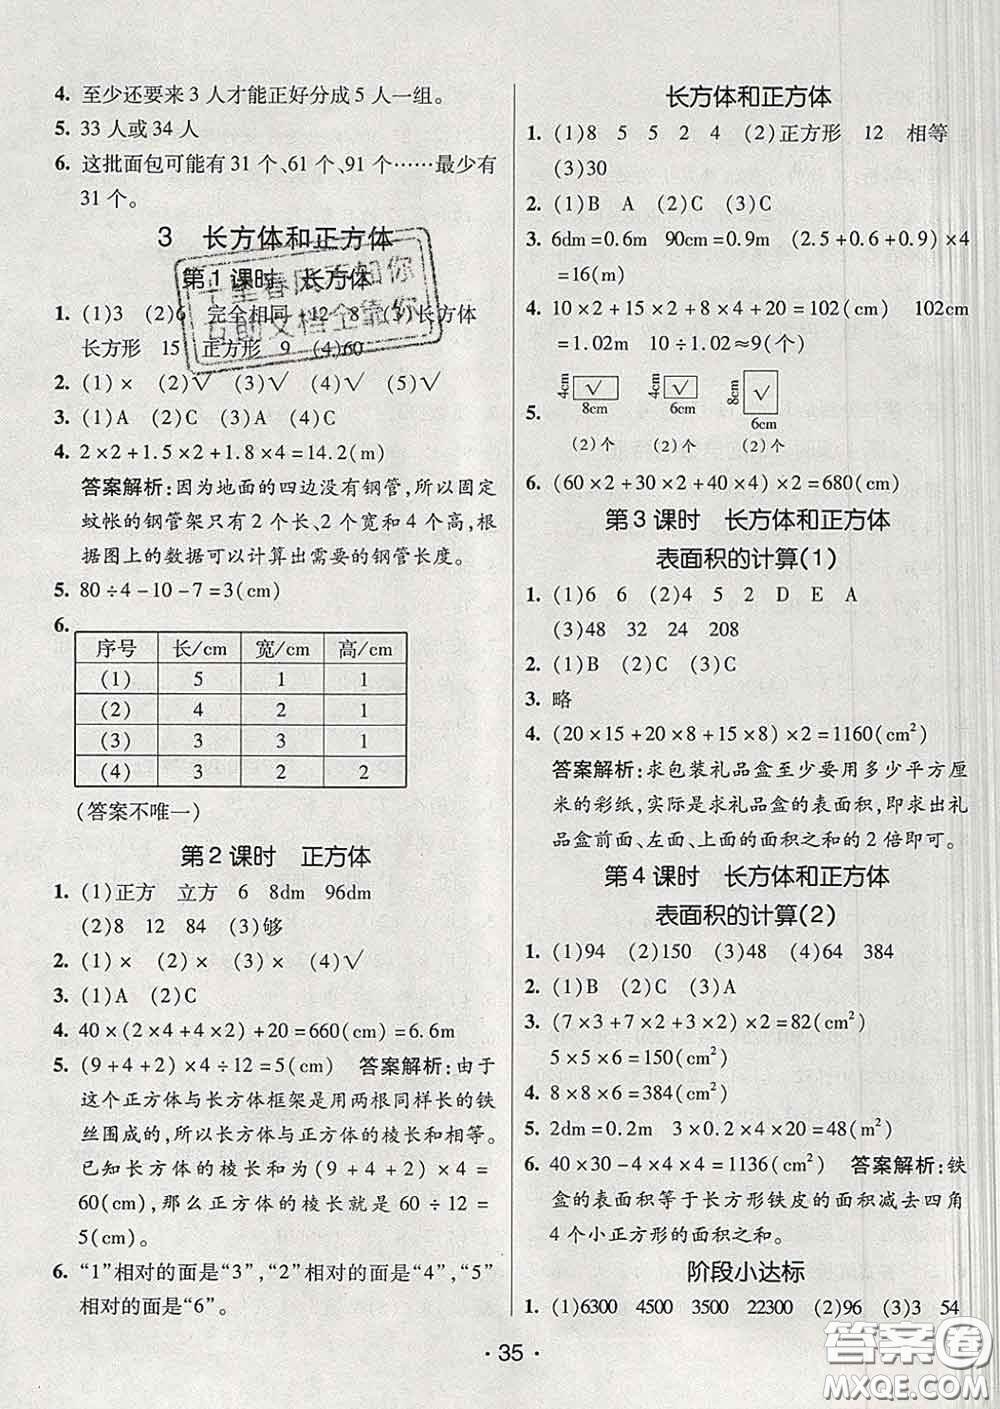 4. 至少还要来3人才能正好分成5人一组。
5. 33人或34人
6. 这批面包可能有31个、61个、91个……最少有
31个。
3 长方体和正方体
第1课时 长方体
1. (1)3 (2)6 完全相同 12 8 (3)长方体
长方形 15 正方形 9 (4)60
2. (1)× (2)√ (3)√ (4)√ (5)√
3. (1)A (2)C (3)A (4)C
4. 2×2+1.5×2+1.8×4=14.2(m)
答案解析:因为地面的四边没有钢管,所以固定
蚊帐的钢管架只有2个长、2个宽和4个高,根
据图上的数据可以计算出需要的钢管长度。
5. 80÷4-10-7=3(cm)
6.
序号 长/cm 宽/cm 高/cm
(1) 5 1 1
(2) 4 2 1
(3) 3 3 1
(4) 3 2 2
(答案不唯一)
第2课时 正方体
1. (1)正方 立方 6 8dm 96dm
(2)8 12 84 (3)够
2. (1)× (2)× (3)× (4)√
3. (1)A (2)C
4. 40×(2×4+4×2)+20=660(cm)=6.6m
5. (9+4+2)×4÷12=5(cm) 答案解析:由于
这个正方体与长方体框架是用两根同样长的铁
丝围成的,所以长方体与正方体的棱长和相等。
已知长方体的棱长和为(9+4+2)×4=
60(cm),那么正方体的棱长就是60÷12=
5(cm)。
6. “1”相对的面是“3”,“2”相对的面是“4”,“5”
相对的面是“6”。
长方体和正方体
1. (1)8 5 5 2 4 (2)正方形 12 相等
(3)30
2. (1)B A (2)C (3)C
3. 6dm=0.6m 90cm=0.9m (2.5+0.6+0.9)×4
=16(m)
4. 10×2+15×2+8×4+20=102(cm) 102cm
=1.02m 10÷1.02≈9(个)
5.
4cm √ 8cm (2)个
4cm √ 6cm (2)个
8cm √ 6cm (2)个
6. (60×2+30×2+40×4)×2=680(cm)
第3课时 长方体和正方体
表面积的计算(1)
1. (1)6 6 (2)4 5 2 D E A
(3)48 32 24 208
2. (1)B (2)C (3)C
3. 略
4. (20×15+20×8+15×8)×2=1160(cm²)
答案解析:求包装礼品盒至少要用多少平方厘
米的彩纸,实际是求礼品盒的表面积,即求出礼
品盒前面、左面、上面的面积之和的2倍即可。
第4课时 长方体和正方体
表面积的计算(2)
1. (1)94 (2)150 (3)48 (4)64 384
2. (1)B (2)C (3)A
3. (7×3+7×2+3×2)×2=82(cm²)
5×5×6=150(cm²)
4. 8×8×6=384(cm²)
5. 2dm=0.2m 3×0.2×4×20=48(m²)
6. 40×30-4×4×4=1136(cm²) 答案解析:铁
盒的表面积等于长方形铁皮的面积减去四角
4个小正方形的面积之和。
阶段小达标
1. (1)6300 4500 3500 22300 (2)96 (3)3 54
·35·
答案圈
MXQE.COM